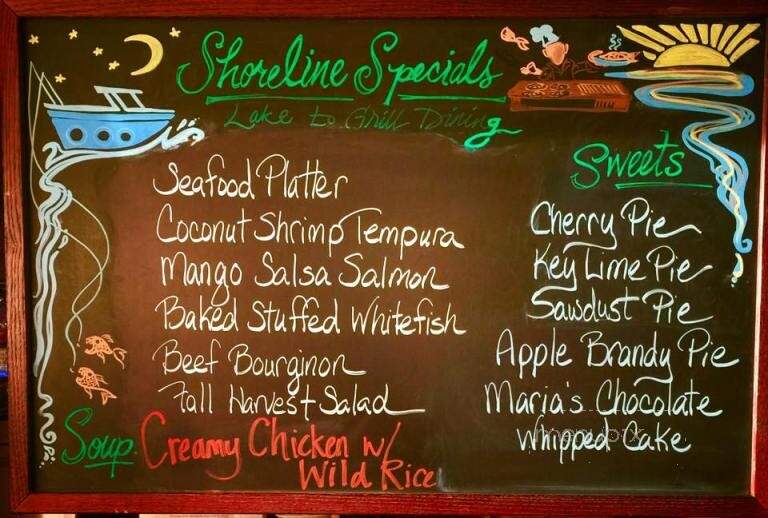 Shoreline Specials
Lake to Grill Dining
Seafood Platter
Coconut Shrimp Tempura
Mango Salsa Salmon
Baked Stuffed Whitefish
Beef Bourginon
Fall Harvest Salad
Soup Creamy Chicken w/
Wild Rice
Sweets
Cherry Pie
Key Lime Pie
Sawdust Pie
Apple Brandy Pie
Maria's Chocolate
Whipped Cake